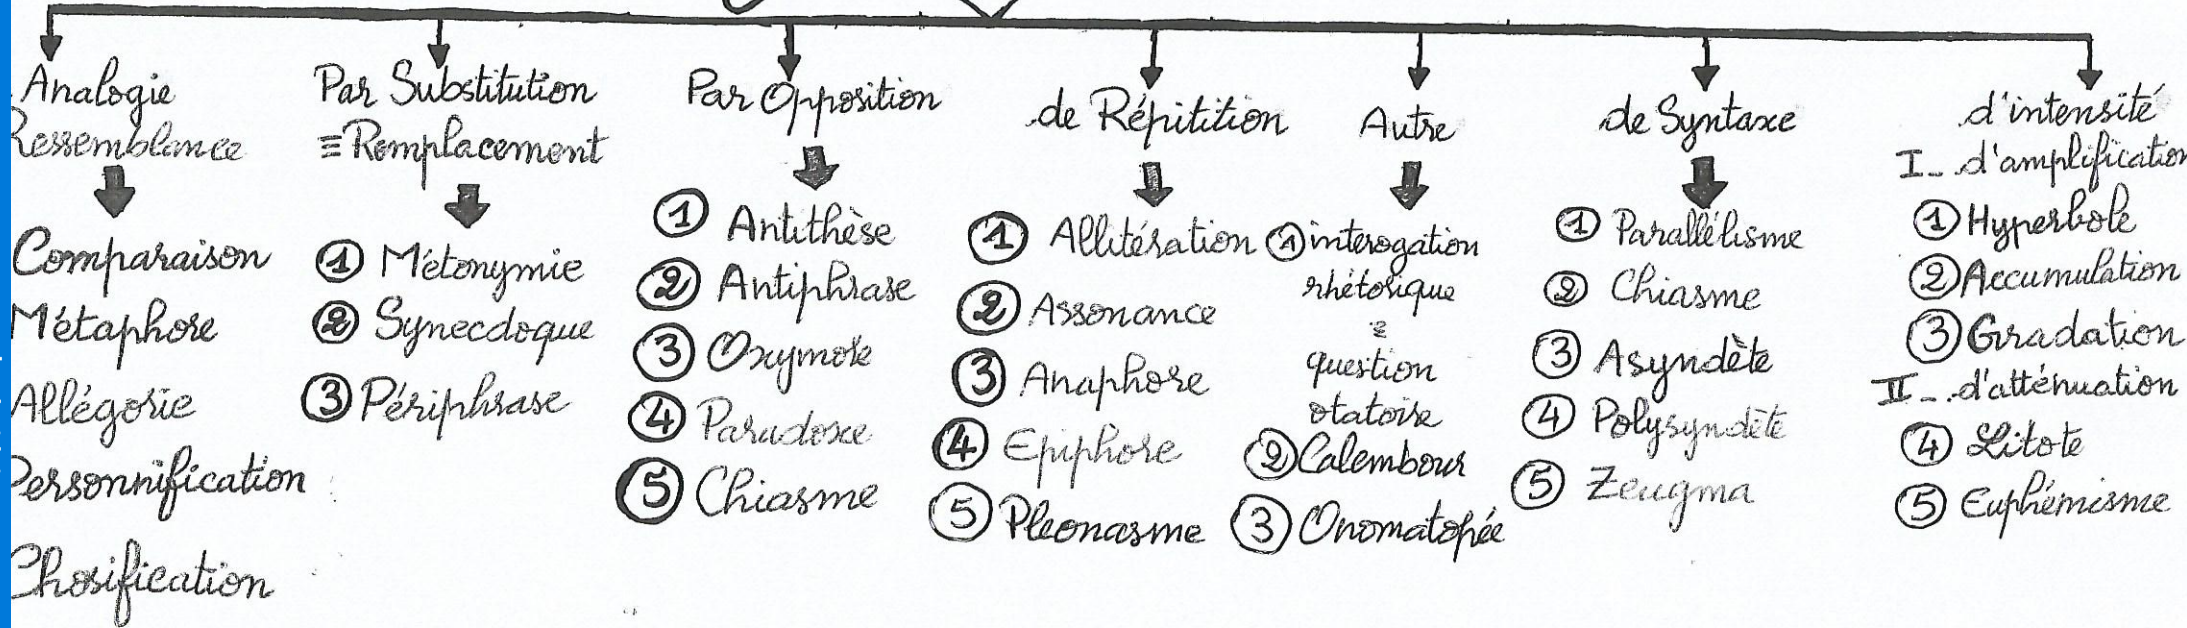 Analogie
Ressemblance
Comparaison
Métaphore
Allégorie
Personnification
Chosification
Par Substitution
≡ Remplacement
① Métonymie
② Synecdoque
③ Périphrase
Par Opposition
① Antithèse
② Antiphrase
③ Oxymore
④ Paradoxe
⑤ Chiasme
de Répitition
① Allitération
② Assonance
③ Anaphore
④ Epiphore
⑤ Pleonasme
Autre
① interogation
rhétorique
≡
question
otatoire
② Calembour
③ Onomatopée
de Syntaxe
① Parallélisme
② Chiasme
③ Asyndète
④ Polysyndète
⑤ Zeugma
d'intensité
I_ d'amplification
① Hyperbole
② Accumulation
③ Gradation
II_ d'atténuation
④ Litote
⑤ Euphémisme